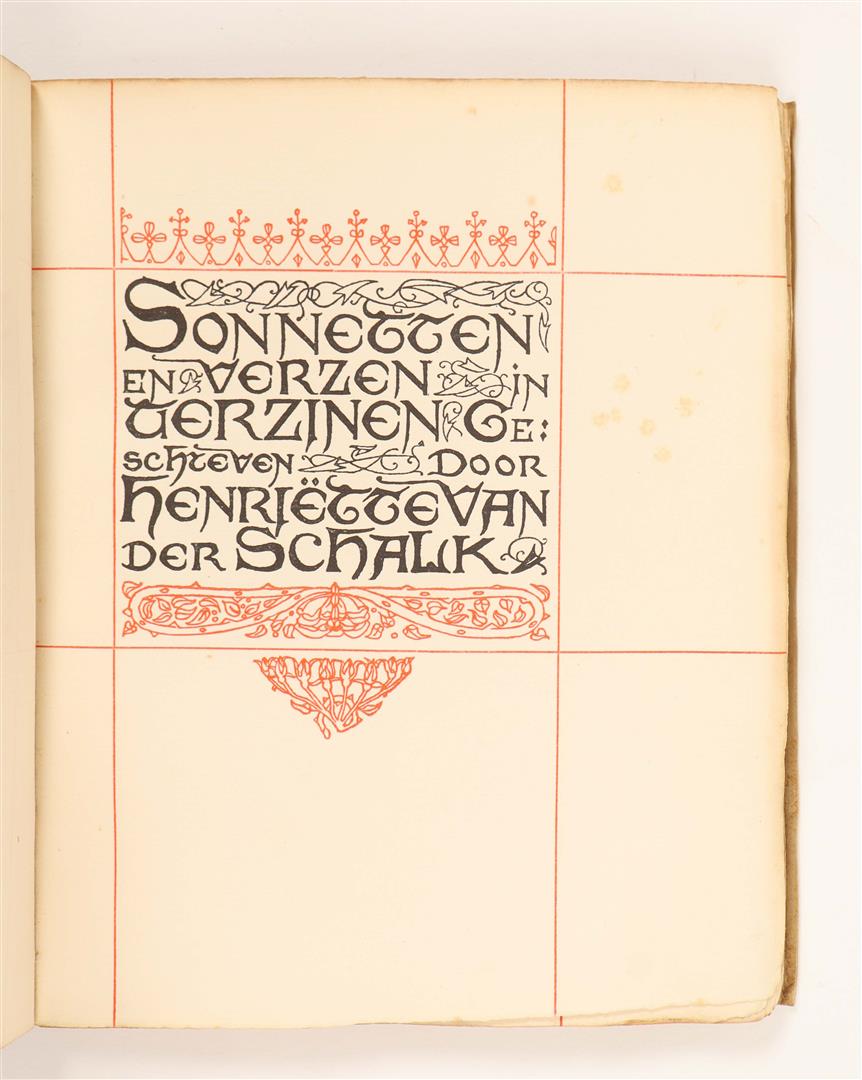 SONNETTEN
EN VERZEN IN
TERZINEN GE:
SCHREVEN DOOR
HENRIËTTE VAN
DER SCHALK